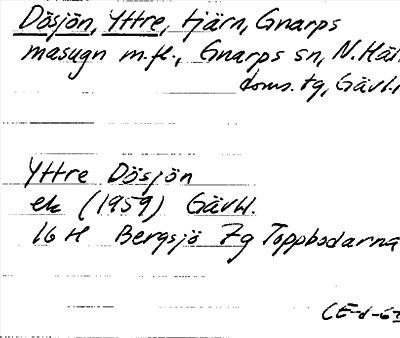 Dösjön, Yttre, tjärn, Gnarps
masugn m.fl., Gnarps sn, N. Häl
doms. tg, Gävl.
Yttre Dösjön
ek (1959) Gävl.
16 H Bergsjö 7g Toppbodarna